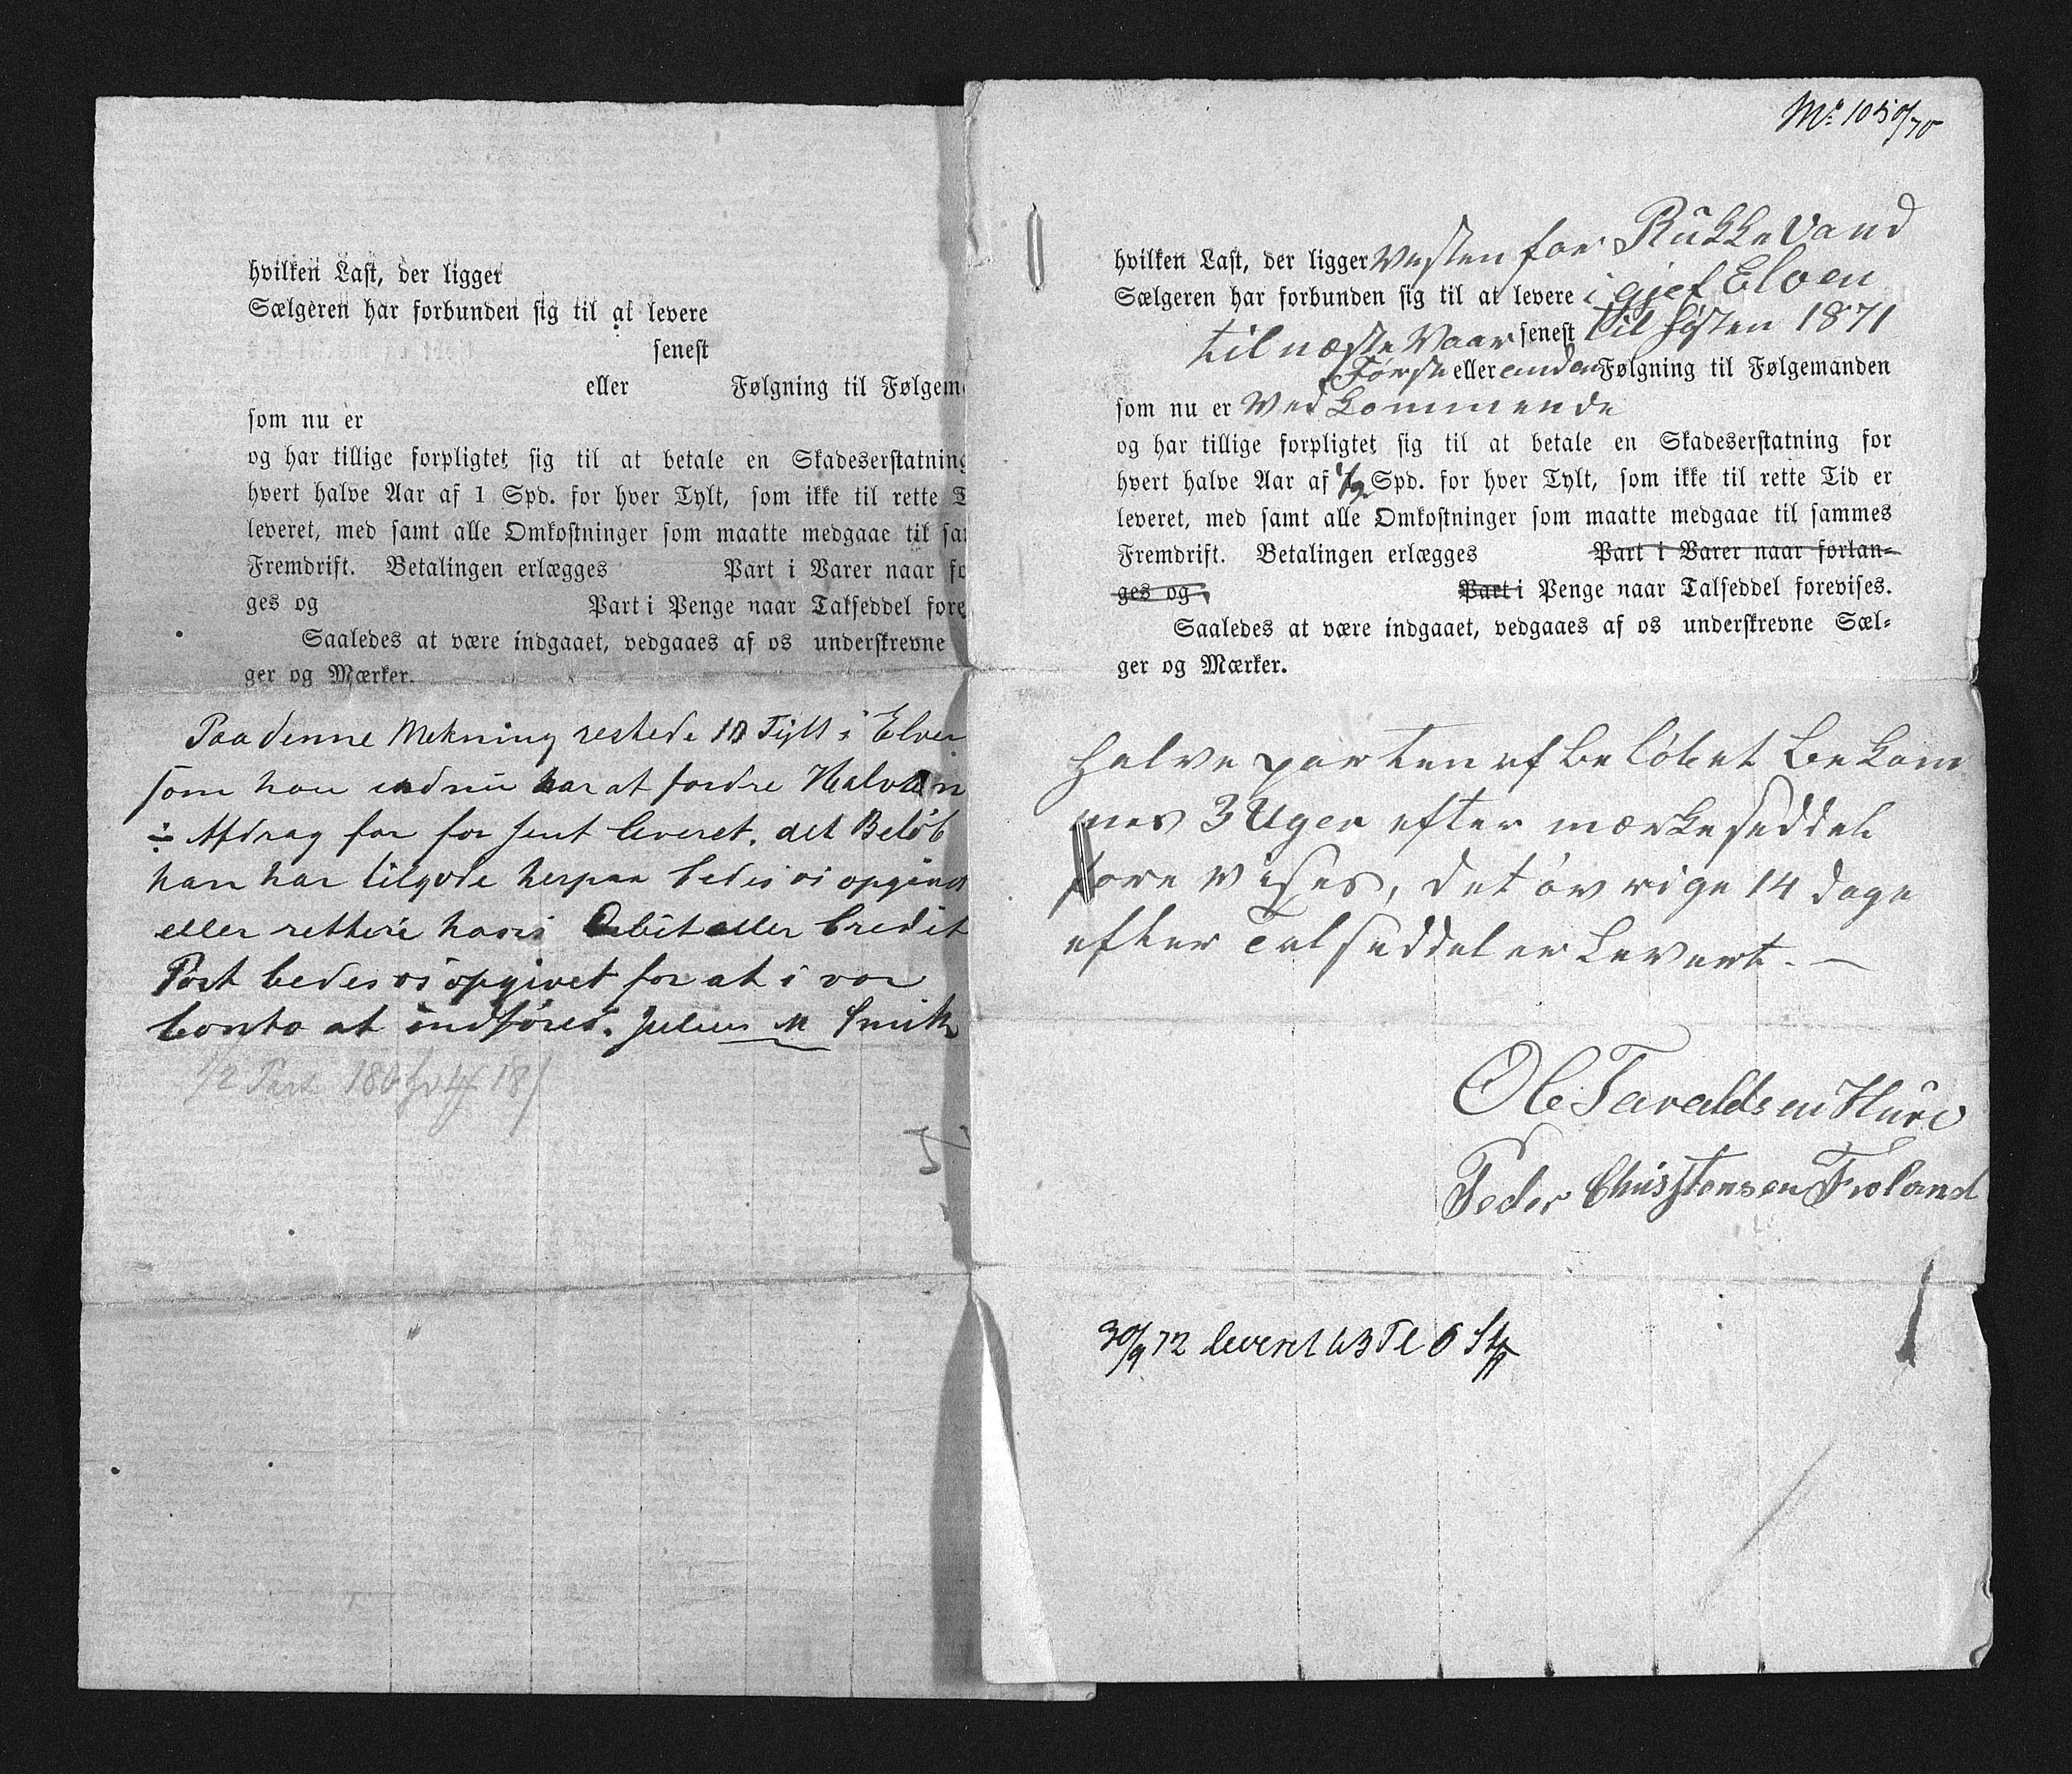 hvilken Last, der ligger
Sælgeren har forbunden sig til at levere
senest
eller Følgning til Følgem
som nu er
og har tillige forpligtet sig til at betale en Skadeserstatning
hvert halve Aar af 1 Spd. for hver Tylt, som ikke til rette T
leveret, med samt alle Omkostninger som maatte medgaae til sa
Fremdrift. Betalingen erlægges Part i Varer naar fo
ges og Part i Penge naar Talseddel fore
Saaledes at være indgaaet, vedgaaes af os underskrevne
ger og Mærker.
Paa denne Mekning restede 10 Tylt i Elven
som han endnu har at fordre Halv
÷ Afdrag for for sent leveret. det Beløb
han har tilgode herpaa bedes os opgivet
eller rettere hans Debit eller Credit
Post bedes os opgivet for at i vor
Conto at indføres. Julius M Smith
1/2 Part
No 1050/70
hvilken Last, der ligger Westen for Rukke Vand
Sælgeren har forbunden sig til at levere i gjef Elven
til næste Vaar senest til Høsten 1871
Første eller anden Følgning til Følgemanden
som nu er Wed Kommende
og har tillige forpligtet sig til at betale en Skadeserstatning for
hvert halve Aar af 1/2 Spd. for hver Tylt, som ikke til rette Tid er
leveret, med samt alle Omkostninger som maatte medgaae til sammes
Fremdrift. Betalingen erlægges Part i Varer naar forlan-
ges og Part i Penge naar Talseddel forevises.
Saaledes at være indgaaet, vedgaaes af os underskrevne Sæl-
ger og Mærker.
Halve parten af Beløbet Be kom
mes 3 Uger efter mærkeseddel
fore vises, det øvrige 14 dage
efter Talseddel er Levert. —
Ole Taraldsen Hurv
Peder Christensen Froland
30/9 72 leveret 63 Tl 6 St